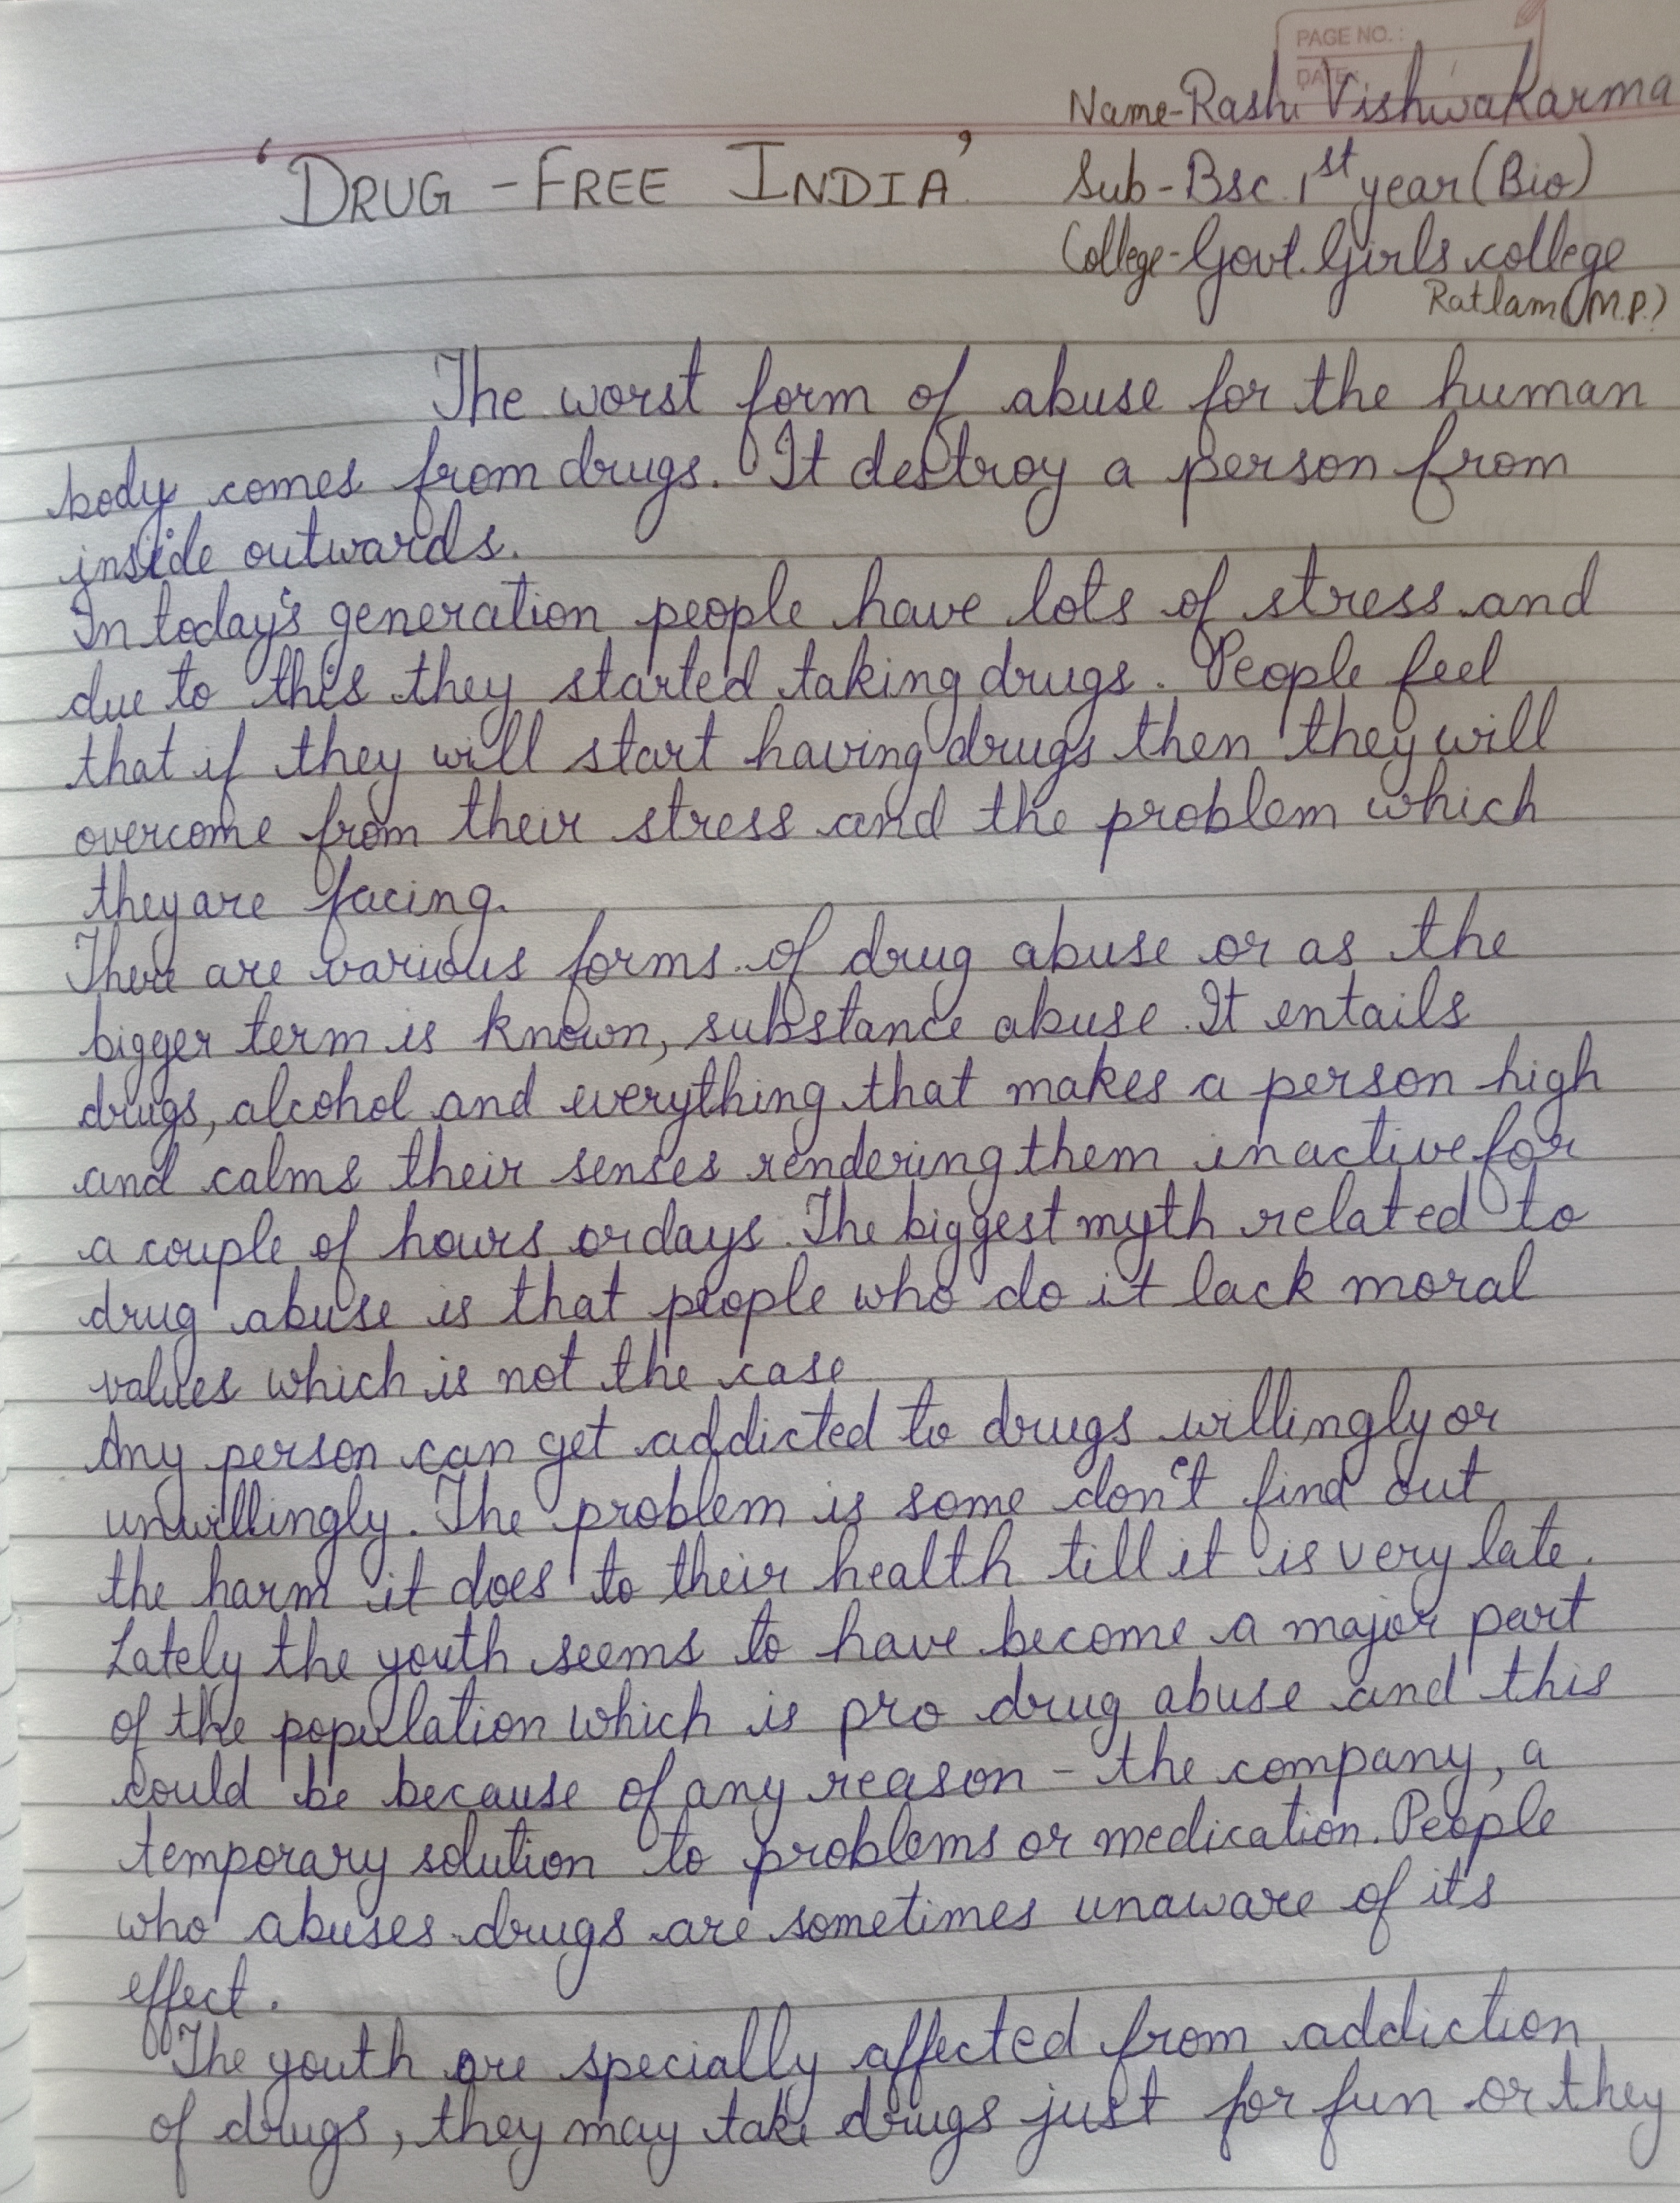 PAGE NO.:
DATE:
Name-Rashi Vishwakarma
'DRUG - FREE INDIA'
Sub - Bsc. 1st year (Bio)
College - Govt. Girls college
Ratlam (M.P.)
The worst form of abuse for the human
body comes from drugs. It destroy a person from
inside outwards.
In today's generation people have lots of stress and
due to this they started taking drugs. People feel
that if they will start having drugs then they will
overcome from their stress and the problem which
they are facing.
There are various forms of drug abuse or as the
bigger term is known, substance abuse. It entails
drugs, alcohol and everything that makes a person high
and calms their senses rendering them inactive for
a couple of hours or days. The biggest myth related to
drug abuse is that people who do it lack moral
values which is not the case
Any person can get addicted to drugs willingly or
unwillingly. The problem is some don't find out
the harm it does to their health till it is very late.
Lately the youth seems to have become a major part
of the population which is pro drug abuse and this
could be because of any reason - the company, a
temporary solution to problems or medication. People
who abuses drugs are sometimes unaware of its
effect.
The youth are specially affected from addiction
of drugs, they may take drugs just for fun or they